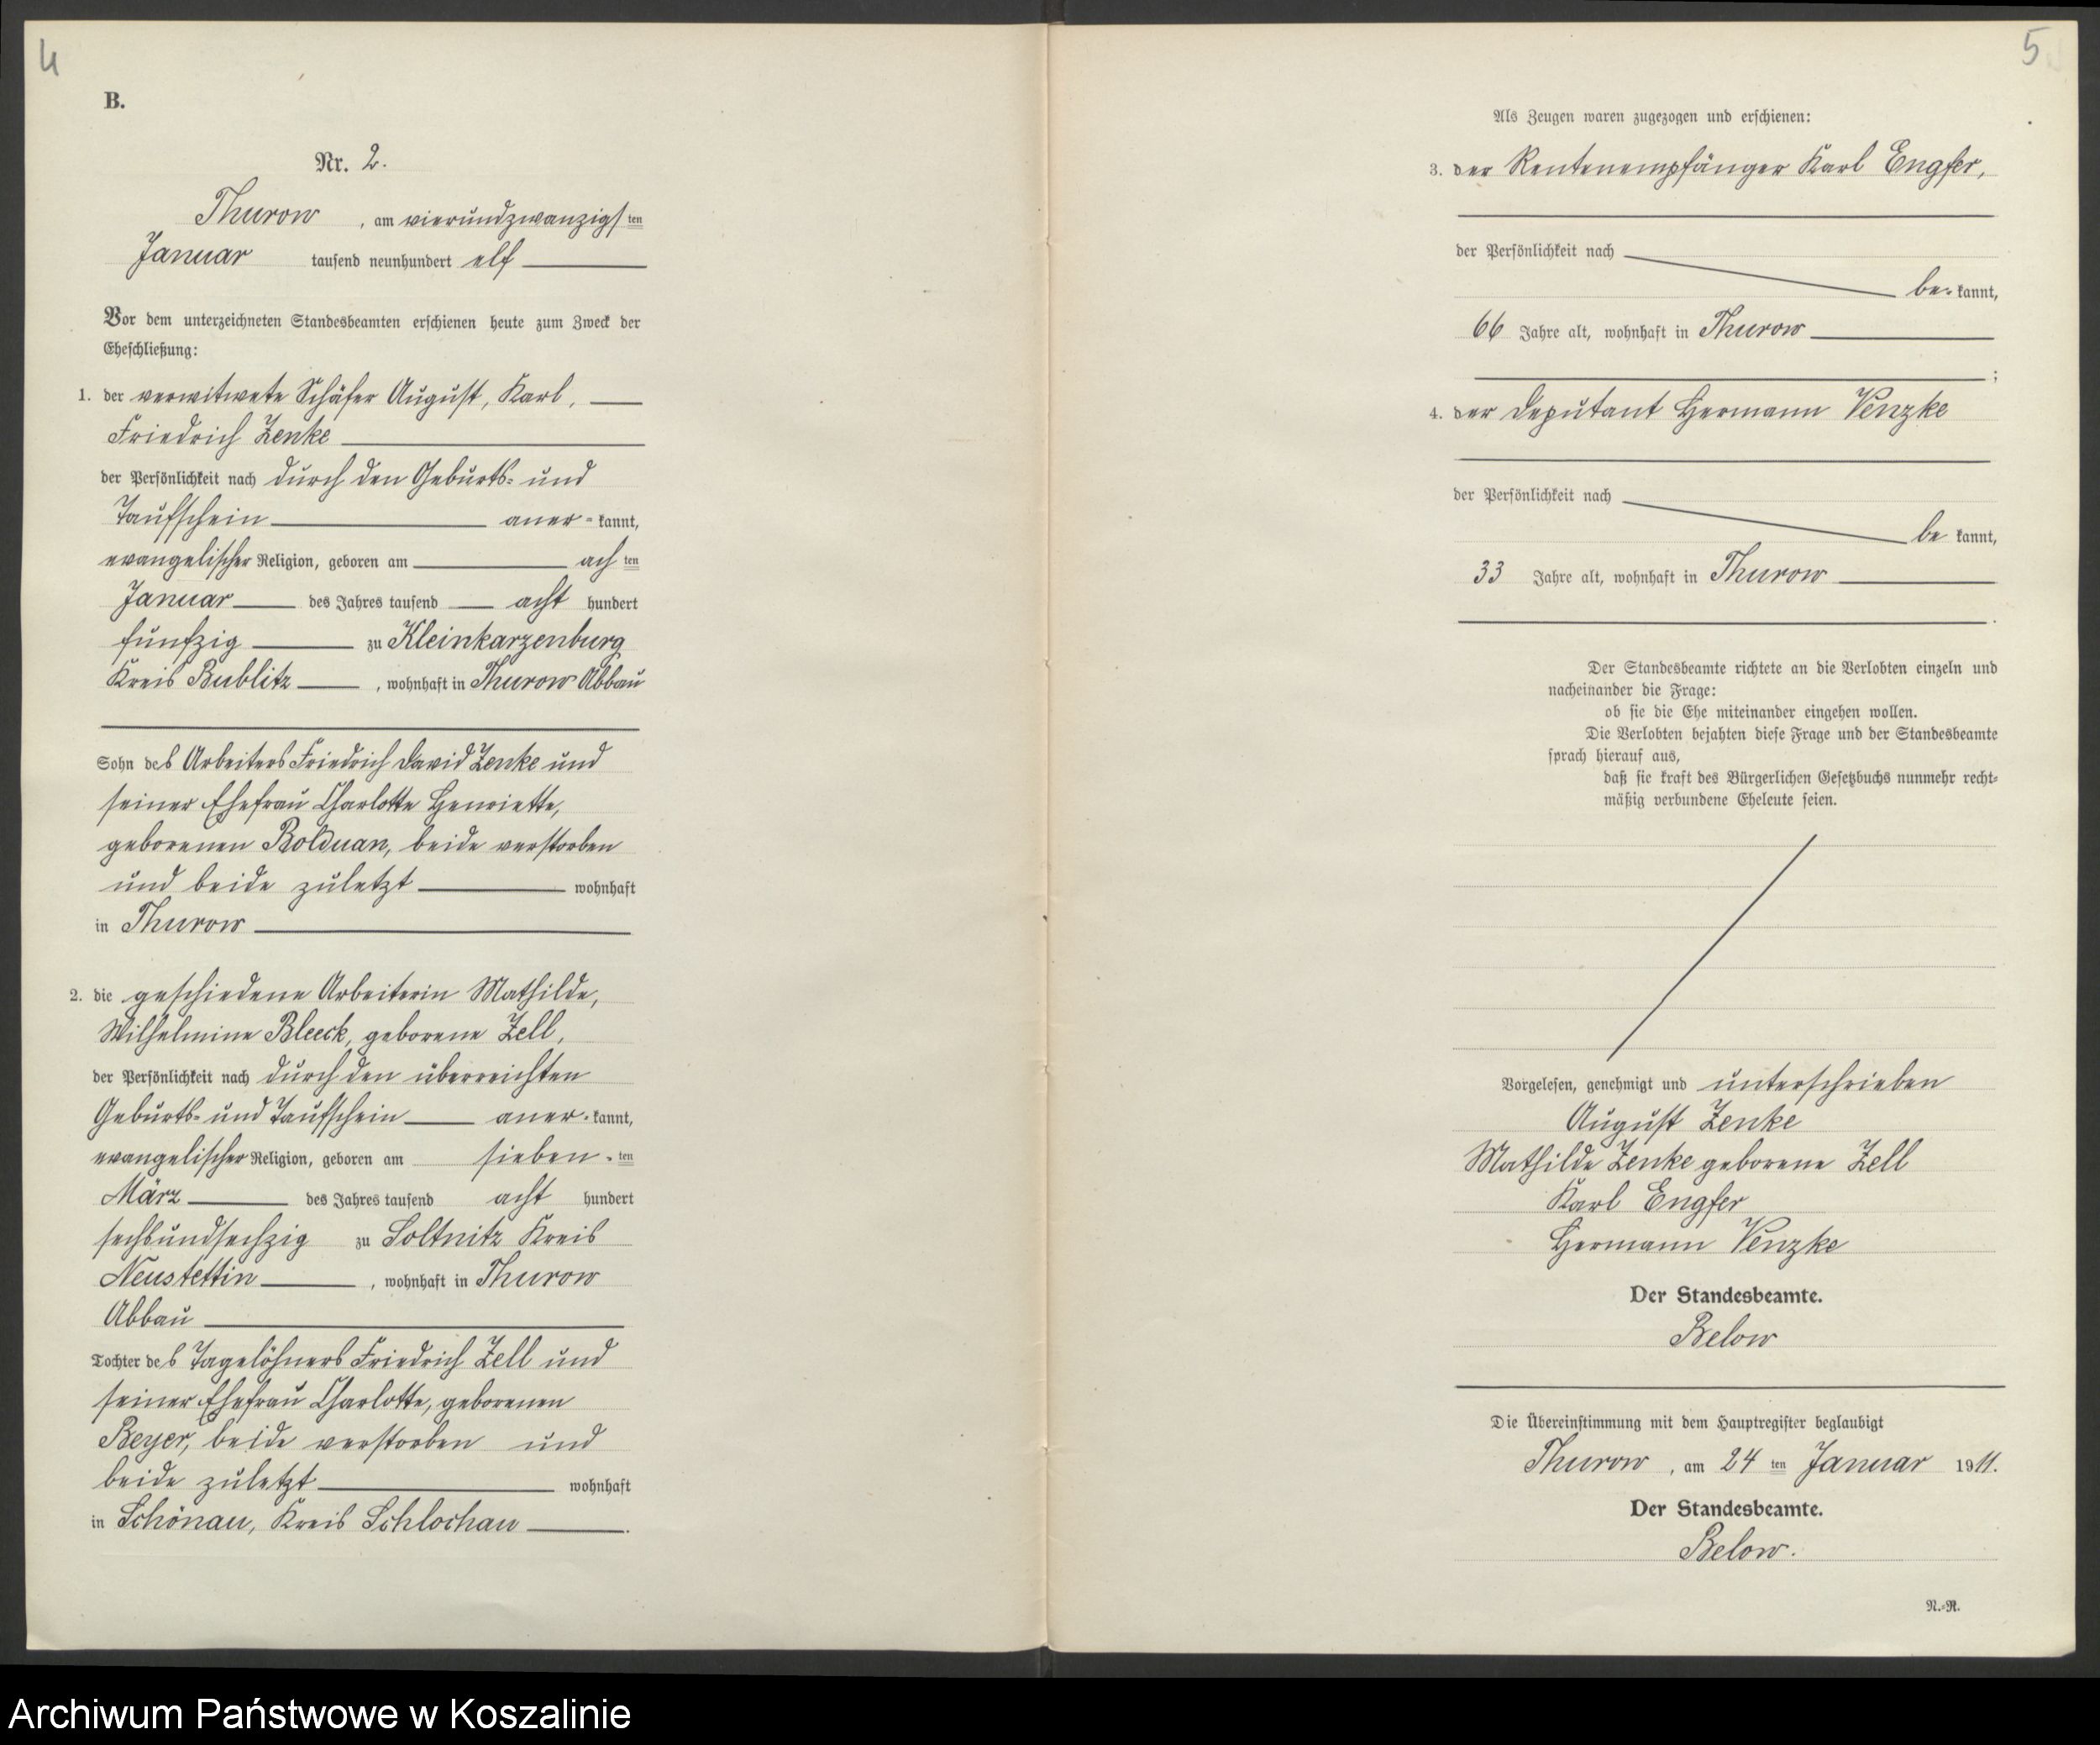 4
B.
Nr. 2.
Thurow, am vierundzwanzigsten
Januar tausend neunhundert elf
Vor dem unterzeichneten Standesbeamten erschienen heute zum Zweck der
Eheschließung:
1. der verwitwete Schäfer August, Karl,
Friedrich Zenke
der Persönlichkeit nach durch den Geburts- und
Taufschein aner-kannt,
evangelischer Religion, geboren am achten
Januar des Jahres tausend acht hundert
fünfzig zu Kleinkarzenburg
Kreis Bublitz, wohnhaft in Thurow Abbau
Sohn des Arbeiters Friedrich David Zenke und
seiner Ehefrau Charlotte Henriette,
geborenen Bolduan, beide verstorben
und beide zuletzt wohnhaft
in Thurow
2. die geschiedene Arbeiterin Mathilde,
Wilhelmine Bleeck, geborene Zell,
der Persönlichkeit nach durch den überreichten
Geburts- und Taufschein aner-kannt,
evangelischer Religion, geboren am sieben-ten
März des Jahres tausend acht hundert
sechsundsechzig zu Soltnitz Kreis
Neustettin, wohnhaft in Thurow
Abbau
Tochter des Tagelöhners Friedrich Zell und
seiner Ehefrau Charlotte, geborenen
Beyer, beide verstorben und
beide zuletzt wohnhaft
in Schönau, Kreis Schlochau.
5
Als Zeugen waren zugezogen und erschienen:
3. der Rentenempfänger Karl Engfer,
der Persönlichkeit nach
be-kannt,
66 Jahre alt, wohnhaft in Thurow
;
4. der Deputant Hermann Venzke
der Persönlichkeit nach
be kannt,
33 Jahre alt, wohnhaft in Thurow
.
Der Standesbeamte richtete an die Verlobten einzeln und
nacheinander die Frage:
ob sie die Ehe miteinander eingehen wollen.
Die Verlobten bejahten diese Frage und der Standesbeamte
sprach hierauf aus,
daß sie kraft des Bürgerlichen Gesetzbuchs nunmehr recht-
mäßig verbundene Eheleute seien.
Vorgelesen, genehmigt und unterschrieben
August Zenke
Mathilde Zenke geborene Zell
Karl Engfer
Hermann Venzke
Der Standesbeamte.
Below
Die Übereinstimmung mit dem Hauptregister beglaubigt
Thurow, am 24 ten Januar 1911.
Der Standesbeamte.
Below.
N.-R.
Archiwum Państwowe w Koszalinie